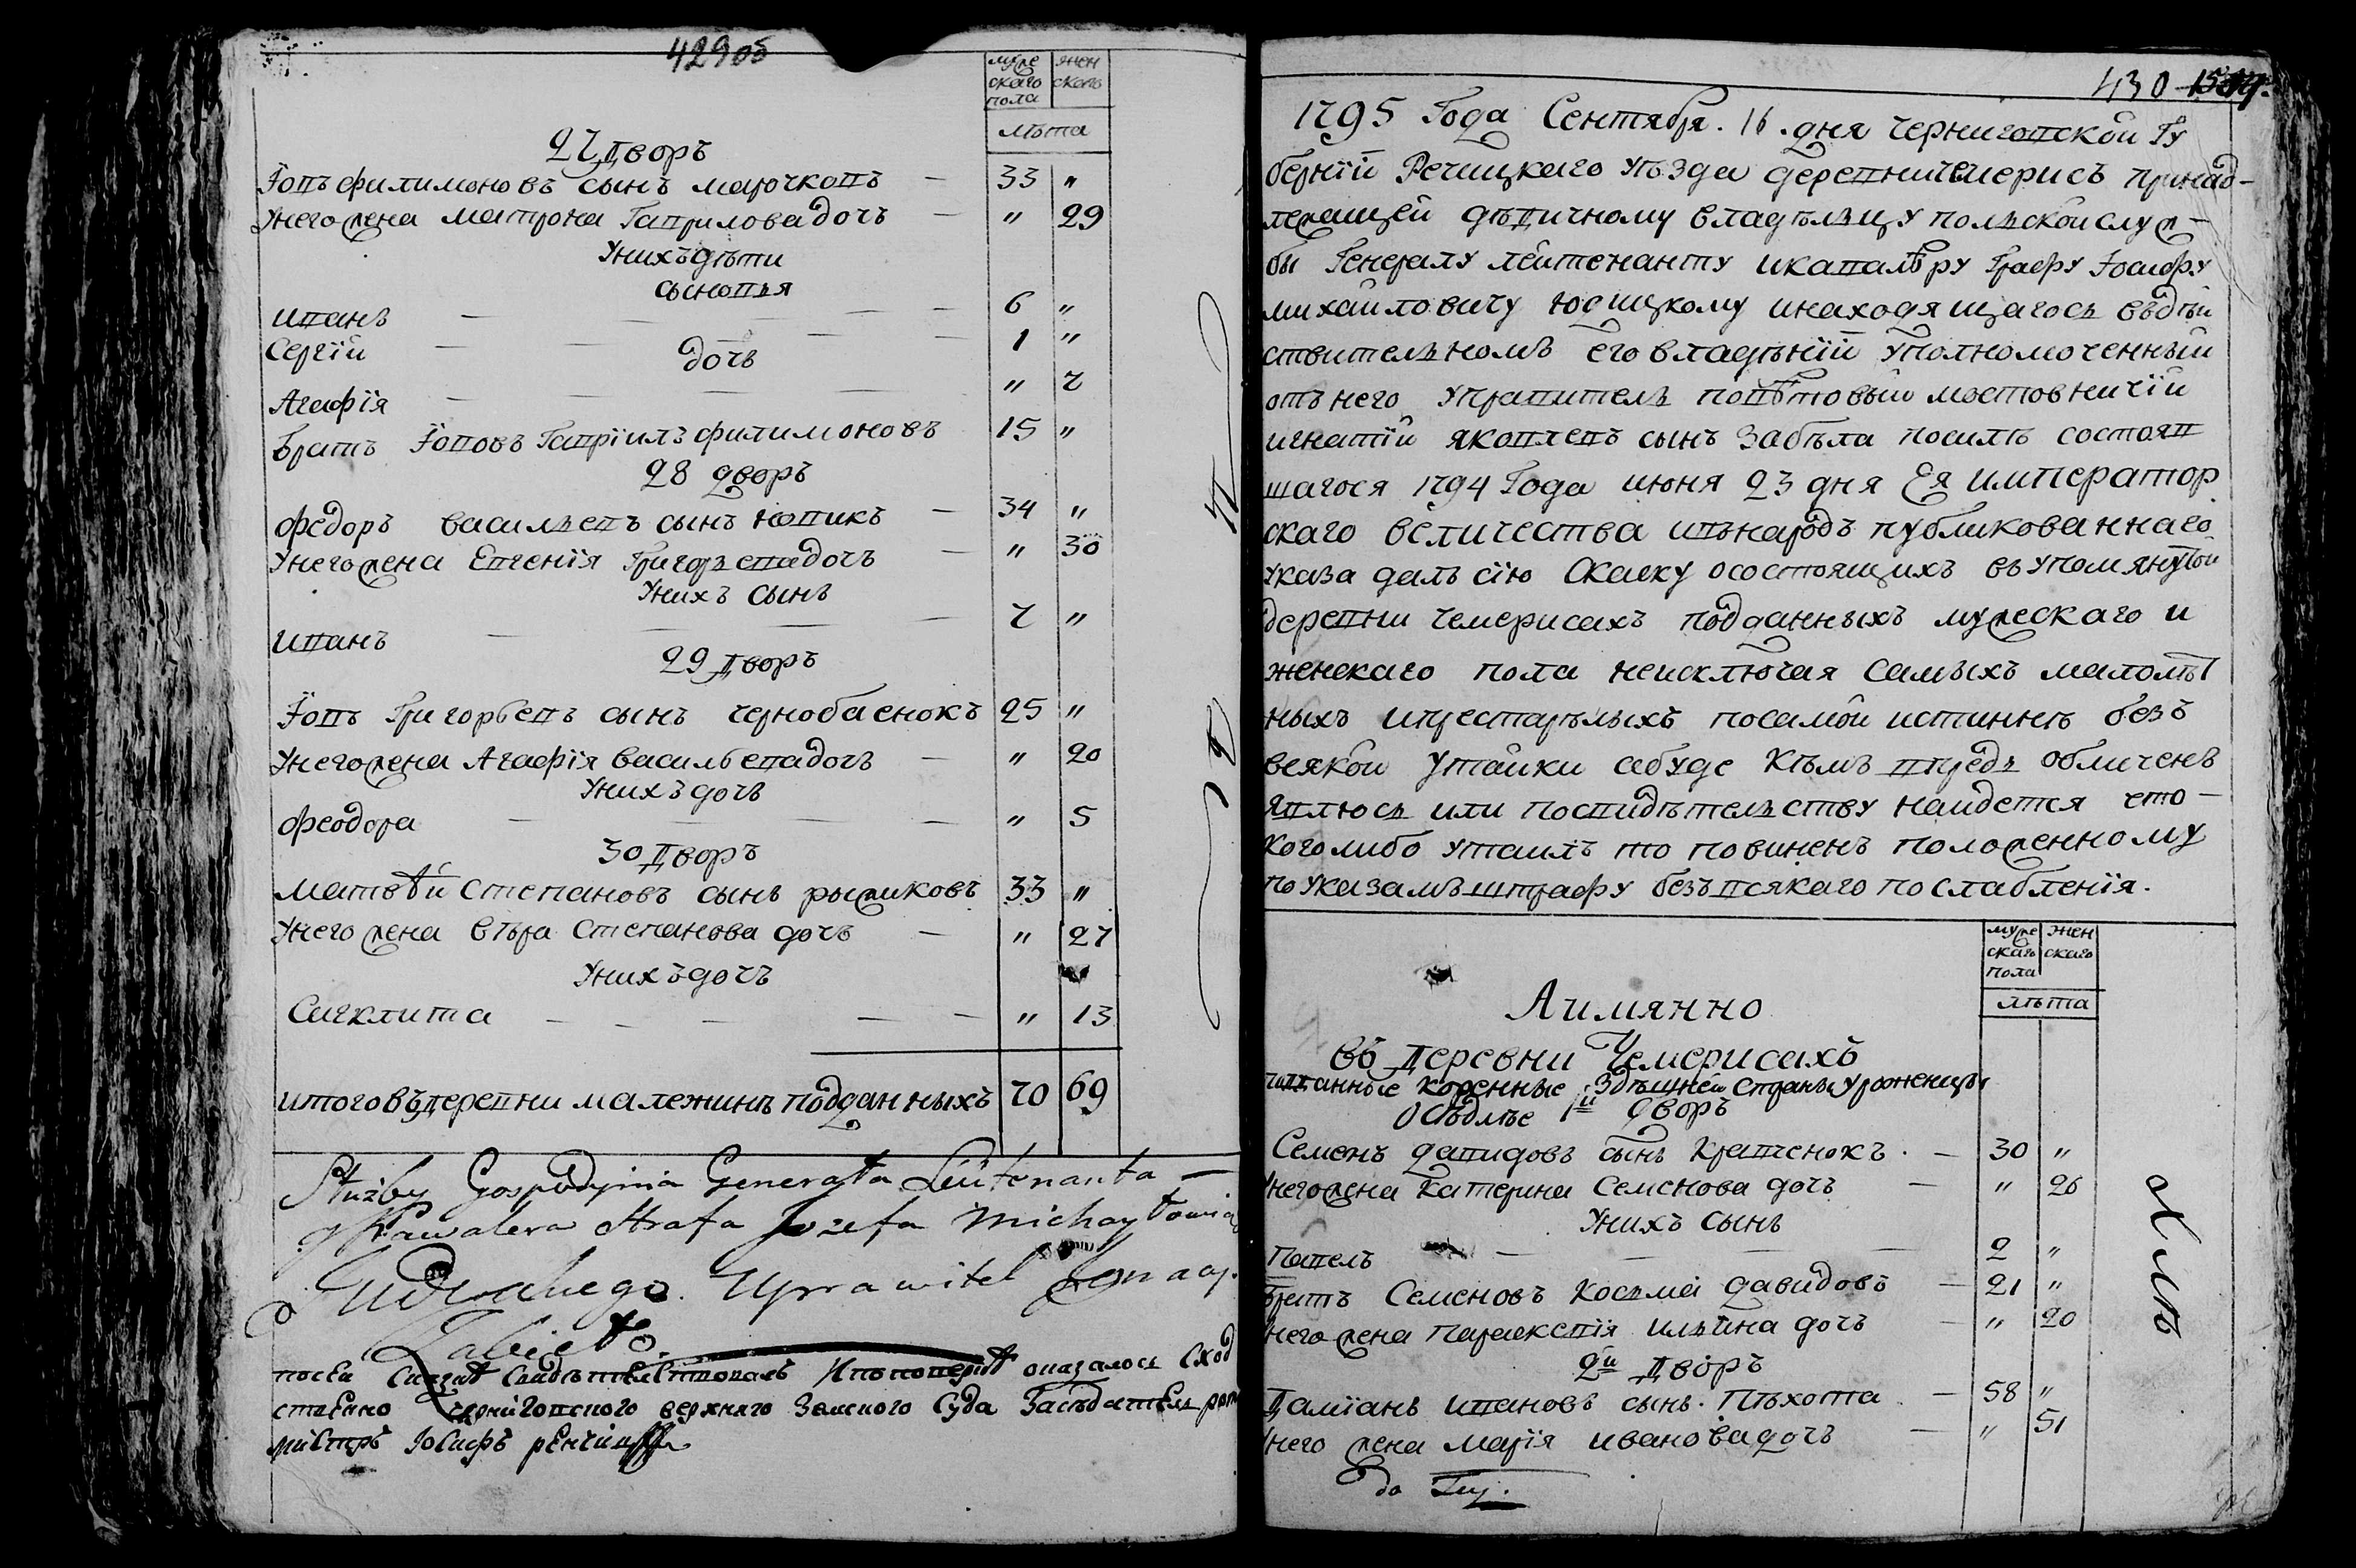 429об
муже
скаго
пола
жен
скаго
лѣта
27 дворъ
Іовъ филимоновъ сынъ марочковъ — 33 "
Унего жена матрона Гаврилова дочь — " 29
Унихъ дѣти
сыновья
иванъ — — — — 6 "
Сергїй — — — — 1 "
дочь
Агафїя — — — — " 7
братъ Іововъ Гаврїилъ филимоновъ 15 "
28 дворъ
федоръ васильевъ сынъ новикъ — 34 "
Унего жена Евгенїя Григорьева дочь — " 30
Унихъ сынъ
иванъ — — — — 7 "
29 дворъ
Іовъ Григорьевъ сынъ чернобаенокъ 25 "
Унего жена Агафїя васильева дочь — " 20
Унихъ дочь
феодора — — — — " 5
30 дворъ
матвѣй степановъ сынъ рыжиковъ 33 "
Унего жена вѣра степанова дочь — " 27
Унихъ дочь
Сигклита — — — — — " 13
итого въ деревни малежинъ подданныхъ 70 69
Służby Gospodynia Generała Leütenanta —
y Kawalera Hrafa Jozefa Michayłowia
Judyckiego. Uprawitel Jgnacy.
Zabieło
посей Скаскѣ Свидѣтелствовалъ Ипоповеркѣ оказалось Сход
ствѣнно Чернiговского верхняго Земского Суда Засѣдатель рот
мистръ Іосифъ
430 15
1795 Года Сентября. 16. дня черниговской Гу
бернїй Речицкаго уѣзда деревни Чемерисъ принад-
лежащей дѣдичному владѣльцу польской служ-
бы Генералу лейтенанту икавалѣру Графу Іосифу
михайловичу юдицкому инаходящагось въдѣй
ствительномъ его владѣнїй уполномоченный
отъ него управитель повѣтовый мостовничїй
игнатїй яковлевъ сынъ Забѣла посилѣ состояв
шагося 1794 Года июня 23 дня Ея император
скаго величества ивънародъ публикованнаго
указа далъ сїю Скаску осостоящихъ въупомянутой
деревни чемерисахъ подданныхъ мужескаго и
женскаго пола неисключая самыхъ малолѣт
ныхъ ипрестарѣлыхъ посамой истиннѣ безъ
всякой утайки абуде кѣмъ впредь обличенъ
явлюсь или посвидѣтельству найдется что-
кого либо утаилъ то повиненъ положенному
по указамъ штрафу безъ всякаго послабленїя.
муже
скаго
пола
жен
скаго
лѣта
Аимянно
въ деревни Чемерисахъ
коренные Здѣшней страны уроженцы
Осѣдлые 1й дворъ
Семенъ давидовъ сынъ Кравченокъ. — 30 "
Унего жена Катерина Семенова дочь — " 26
Унихъ сынъ
Павелъ — — — — 2 "
братъ Семеновъ Козьма давидовъ — 21 "
Унего жена параскевїя ильина дочь — " 20
2й дворъ
Дамїанъ ивановъ сынъ. Пѣхота — 58 "
Унего жена марїя иванова дочь — " 51